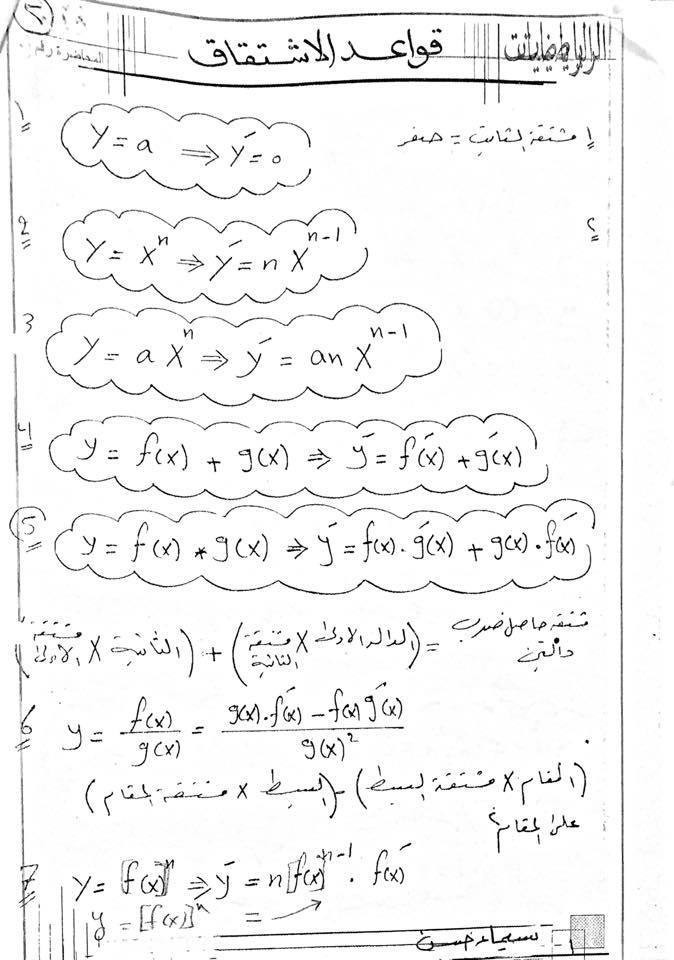 الرياضيات
قواعد الاشتقاق
المحاضرة رقم
1 y = a ⇒ ȳ = 0
مشتقة الثابت = صفر
2 y = x^n ⇒ ȳ = n x^(n-1)
3 y = a x^n ⇒ ȳ = an x^(n-1)
4 y = f(x) + g(x) ⇒ ȳ = f̄(x) + ḡ(x)
5 y = f(x) * g(x) ⇒ ȳ = f(x) · ḡ(x) + g(x) · f̄(x)
مشتقة حاصل ضرب دالتين = (الدالة الاولى X مشتقة الثانية) + (الثانية X مشتقة الاولى)
6 y = f(x) / g(x) = (g(x) · f̄(x) − f(x) ḡ(x)) / g(x)^2
(المقام X مشتقة البسط) - (البسط X مشتقة المقام)
على المقام²
7 y = [f(x)]^n ⇒ ȳ = n[f(x)]^(n-1) · f̄(x)
y = [f(x)]^n = →